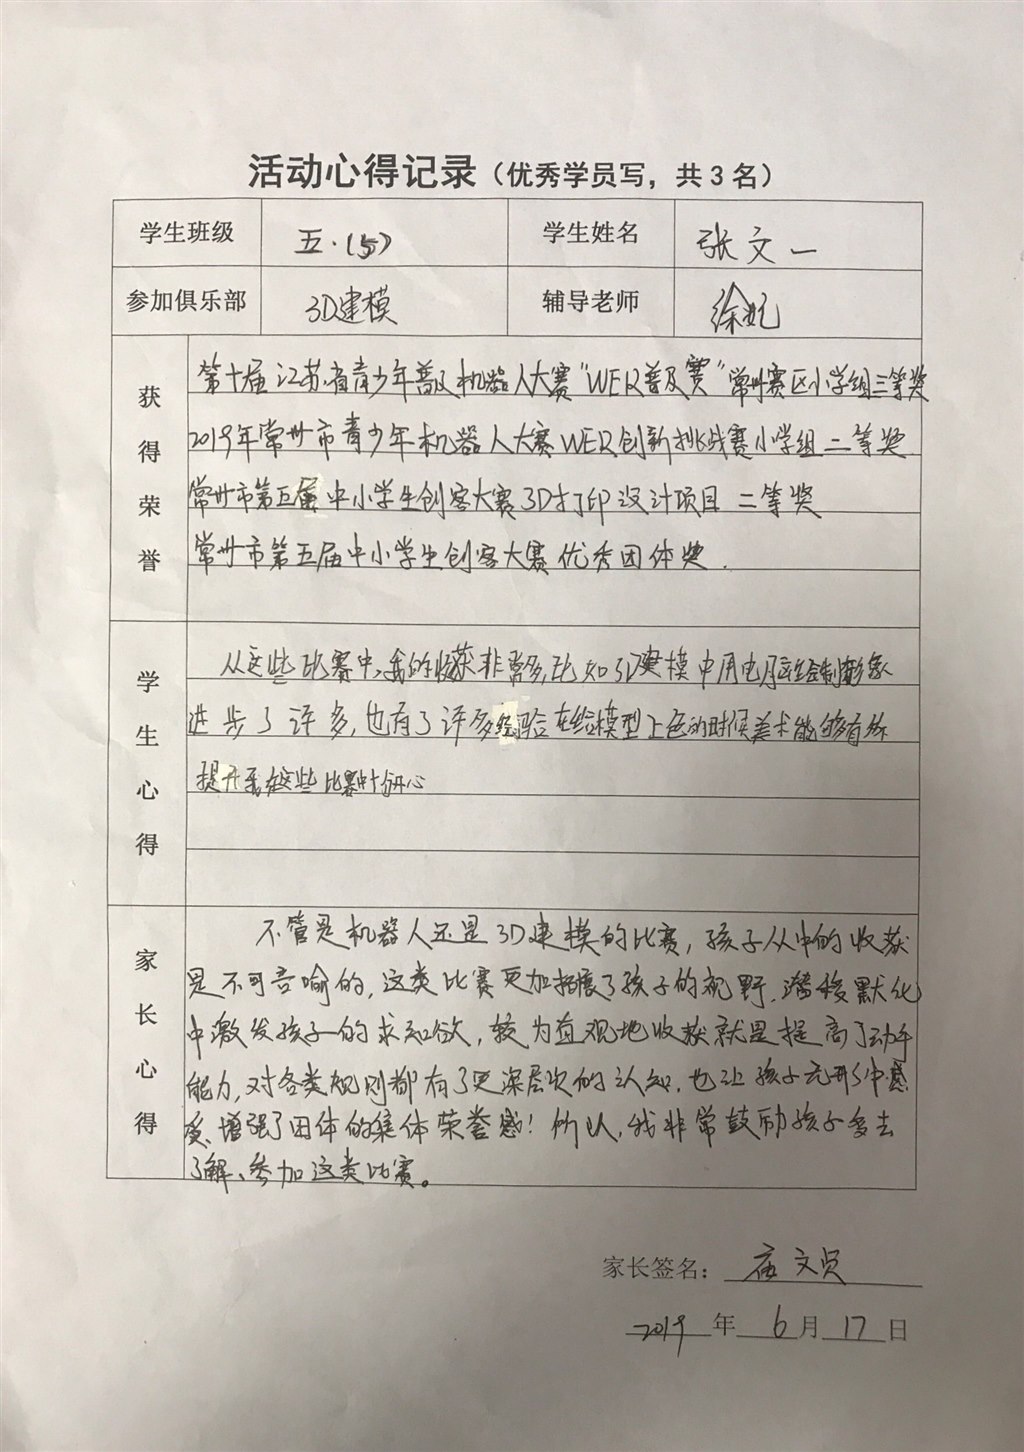 活动心得记录（优秀学员写，共3名）
学生班级 五.(5) 学生姓名 张文一
参加俱乐部 3D建模 辅导老师 徐妃
获得荣誉
第十届江苏省青少年普及机器人大赛"WER普及赛"常州赛区小学组三等奖
2019年常州市青少年机器人大赛WER创新挑战赛小学组二等奖
常州市第五届中小学生创客大赛3D打印设计项目 二等奖
常州市第五届中小学生创客大赛优秀团体奖.
学生心得
从这些比赛中,我的收获非常多,比如3D建模中用电脑绘制
进步了许多,也有了许多经验在给模型上色的时候美术能够有所
提升我在这些比赛中十分开心
家长心得
不管是机器人还是3D建模的比赛,孩子从中的收获
是不可言喻的,这类比赛更加拓展了孩子的视野.潜移默化
中激发孩子的求知欲,较为直观地收获就是提高了动手
能力,对各类规则都有了更深层次的认知.也让孩子
增强了团体的集体荣誉感!所以,我非常鼓励孩子多去
了解、参加这类比赛。
家长签名： 文
2019年6月17日